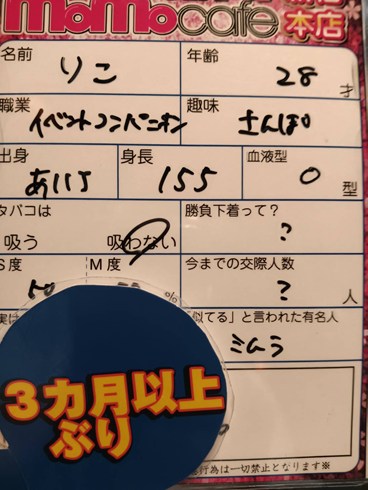 momocafe
本店
名前
りこ
年齢
28才
職業
イベントコンパニオン
趣味
さんぽ
出身
あいち
身長
155
血液型
O型
タバコは
吸う 吸わない
勝負下着って？
？
S度
M度
%
今までの交際人数
？人
実は
「似てる」と言われた有名人
ミムラ
3カ月以上
ぶり
行為は一切禁止となります※